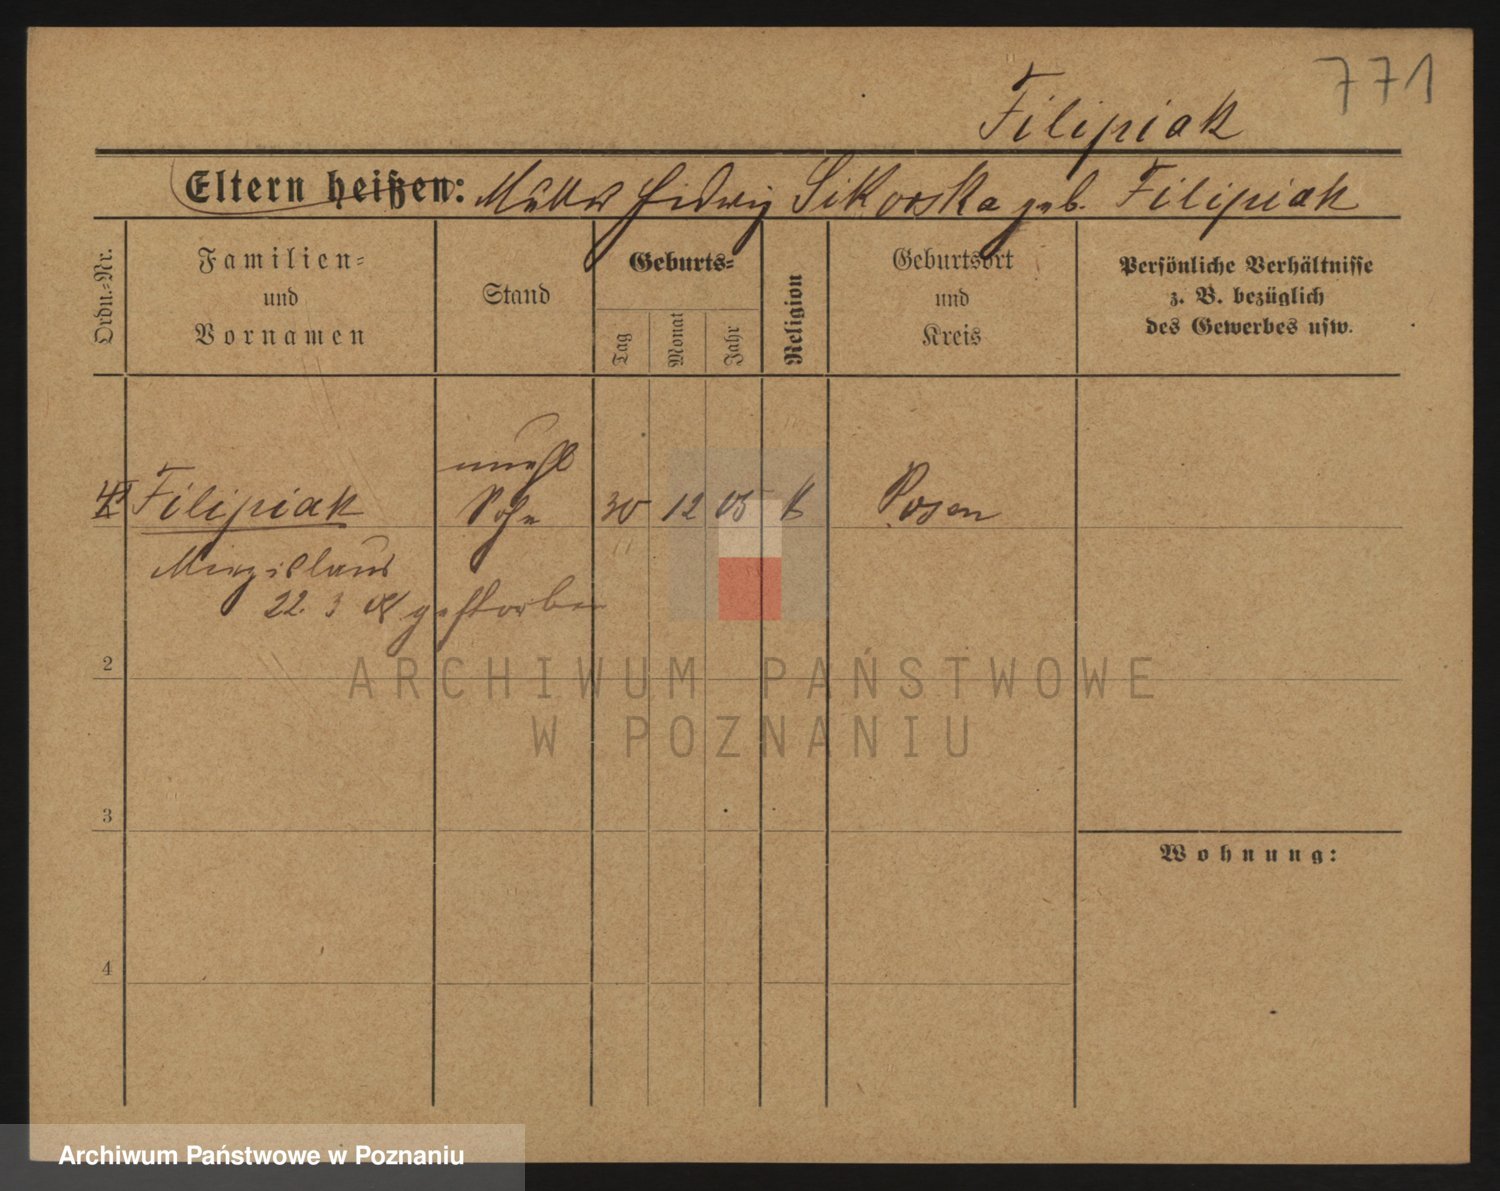 771
Filipiak
Eltern heißen: Mutter Hedwig Sikorska geb. Filipiak
Ordn.-Nr.
Familien-
und
Vornamen
Stand
Geburts-
Tag
Monat
Jahr
Religion
Geburtsort
und
Kreis
Persönliche Verhältnisse
z. B. bezüglich
des Gewerbes usw.
unehl
Filipiak Sohn 30 12 05 k Posen
Miezislaus
22. 3 gestorben
2
ARCHIWUM PAŃSTWOWE
W POZNANIU
3
Wohnung:
4
Archiwum Państwowe w Poznaniu